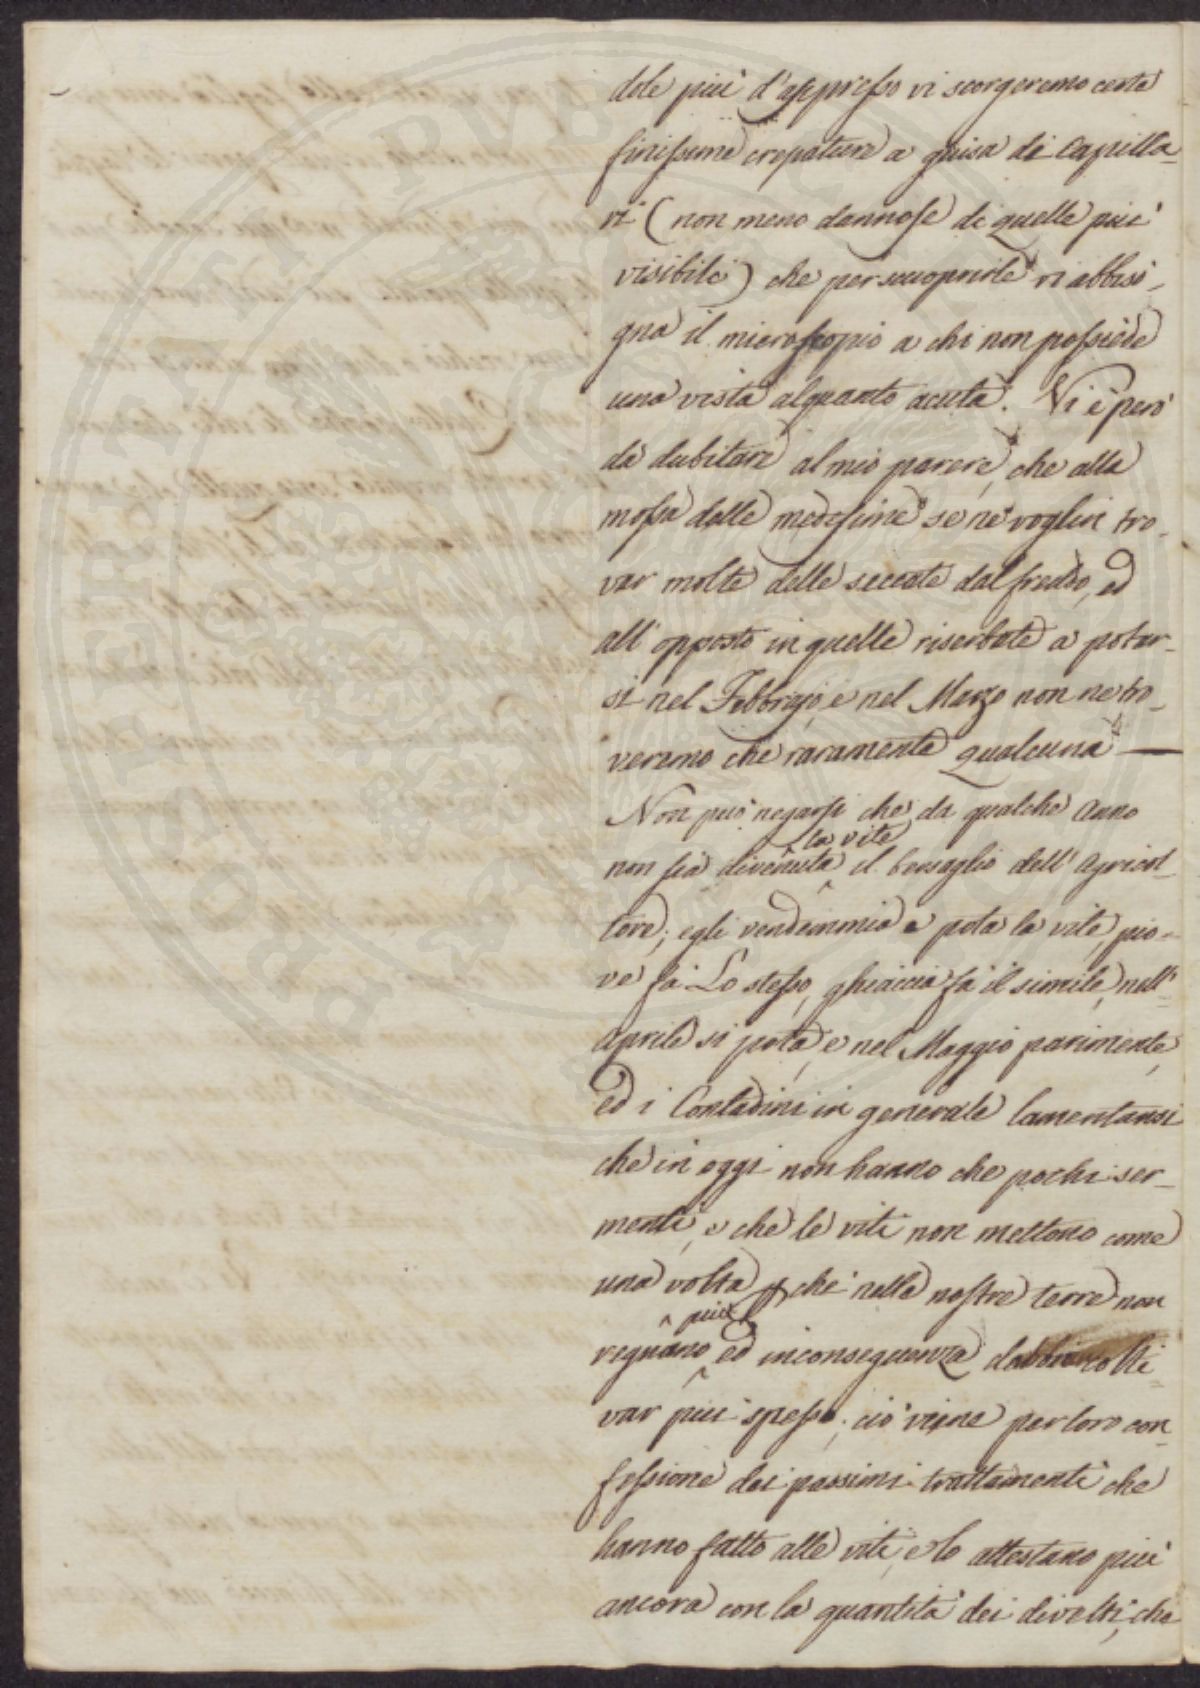 dole più d'appresso vi scorgeremo certe
finissime crepature a guisa di Capilla-
ri (non meno dannose di quelle più
visibili) che per scuoprirle vi abbiso-
gna il microscopio a chi non possiede
una vista alquanto acuta. Vi è però
da dubitare al mio parere, che alla
mossa delle medesime se ne voglin tro-
var molte delle seccate dal freddo, ed
all'opposto in quelle riserbate a potar-
si nel Febbrajo, e nel Marzo non ne tro-
veremo che raramente qualcuna —
Non può negarsi che da qualche anno
la vite
non sia divenuta il bersaglio dell'Agricol-
tore; egli vendemmia e pota la vite, pio-
ve fa Lo stesso, ghiaccia fa il simile, nell'
Aprile si pota, e nel Maggio parimente,
ed i Contadini in generale lamentansi
che in oggi non hanno che pochi ser-
menti, e che le viti non mettono come
una volta, che nelle nostre terre non
più
regnano ed inconseguenza debbon colti-
var più spesso; ciò viene per loro con-
fessione dei passimi trattamenti che
hanno fatto alle viti, e lo attestano più
ancora con la quantità dei divelti, che